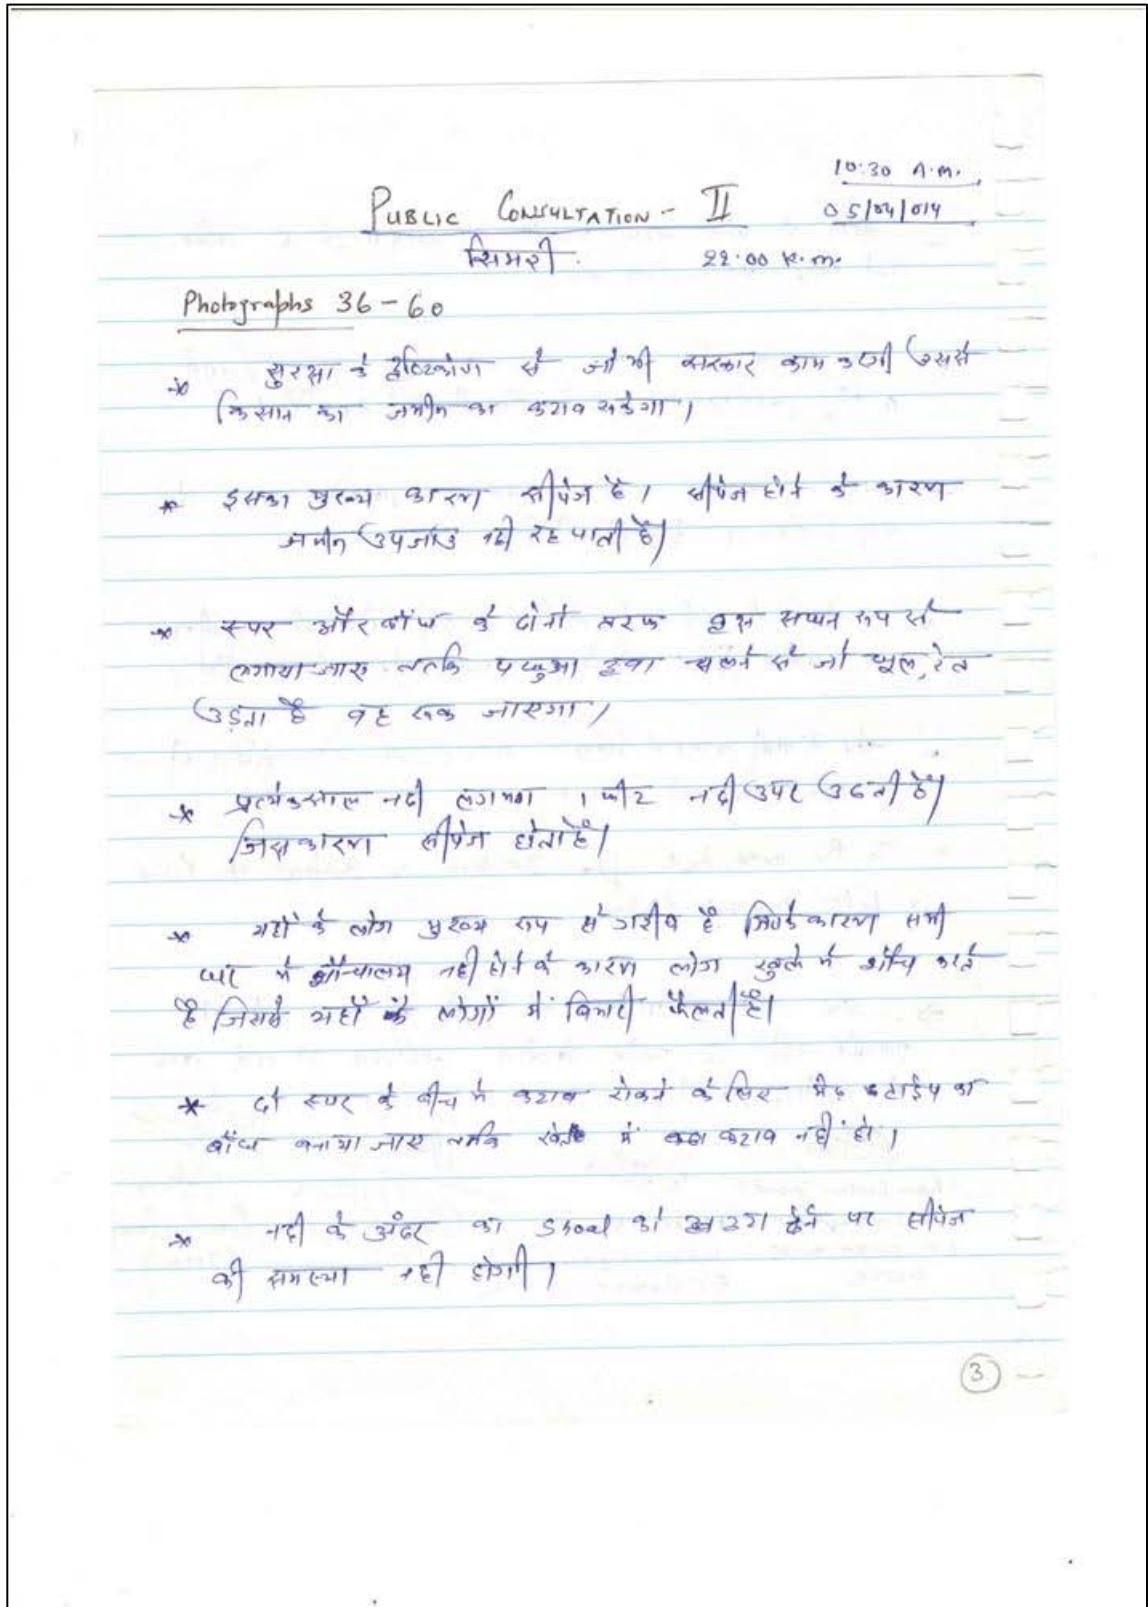 10:30 A.m.
PUBLIC CONSULTATION - II
05/04/014
सिमरी.
22.00 K.m.
Photographs 36-60
* सुरक्षा के दृष्टिकोण से जो भी सरकार काम करेगी उससे
किसान का जमीन का कटाव रुकेगा।
* इसका मुख्य कारण सीपेज है। सीपेज होने के कारण
जमीन उपजाउ नही रह पाती है।
* स्पर और बाँध के दोनो तरफ वृक्ष सघन रुप से
लगाया जाए ताकि पछुआ हवा चलने से जो धूल, रेत
उड़ता है वह रूक जाएगा।
* प्रत्येक साल नदी लगभग 1 फीट नदी उपर उठती है।
जिस कारण सीपेज होता है।
* यहाँ के लोग मुख्य रुप से गरीब है जिसके कारण सभी
घर में शौचालय नही होने के कारण लोग खुले में शौच करते
है जिससे यहाँ के लोगों में बिमारी फैलती है।
* दो स्पर के बीच में कटाव रोकने के लिए मेढ़ टाईप का
बाँध बनाया जाए ताकि खेत में कटाव नहीं हो।
* नदी के अंदर का Shoal को हटा देने पर सीपेज
की समस्या नही होगी।
3